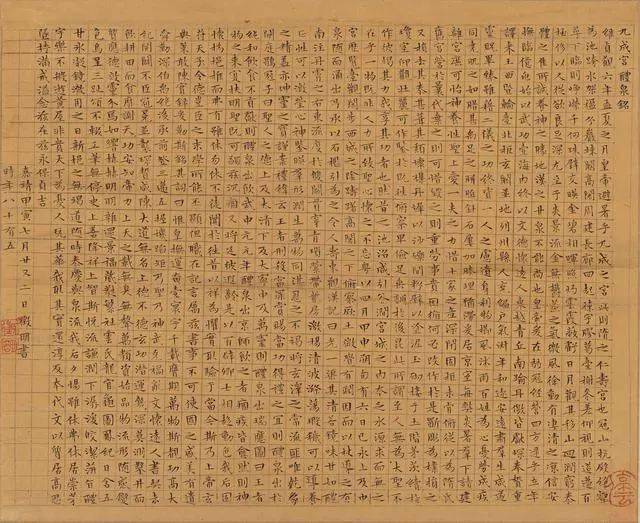 九成宮醴泉銘
維貞觀六年孟夏之月皇帝避暑乎九成之宮此則隋之仁壽宮也冠山抗殿絕壑
為池跨水架楹分巖竦闕高閣周建長廊四起棟宇膠葛臺榭參差仰視則迢遞百
尋下臨則崢嶸千仞珠璧交暎金碧相輝照灼雲霞蔽虧日月觀其移山迴澗窮泰
極侈以人從欲良足深尤至于炎景流金無鬱蒸之氣微風徐動有淒清之涼信安
體之佳所誠養神之勝地漢之甘泉不能尚也皇帝爰在弱冠經營四方逮乎立年
撫臨億兆始以武功壹海內終以文德懷遠人東越青丘南踰丹徼皆獻琛奉贄重
譯來王西曁輪臺北拒玄闕並地列州縣人充編戶氣淑年和邇安遠肅羣生咸遂
靈貺畢臻雖藉二儀之功終資一人之慮遺身利物櫛風沐雨百姓為心憂勞成疾
同堯肌之如腊甚禹足之胼胝針石屢加腠理猶滯爰居京室每弊炎暑羣下請建
離宮庶可怡神養性聖上愛一夫之力惜十家之產深閉固拒未肯俯從以為隋氏
舊宮營於曩代棄之則可惜毀之則重勞事貴因循何必改作於是斲彫為樸損之
又損去其泰甚葺其頹壞雜丹墀以沙礫間粉壁以塗泥玉砌接於土階茅茨續於
瓊室仰觀壯麗可作鑒於既往俯察卑儉足垂訓於後昆此所謂至人無為大聖不
作彼竭其力我享其功者也然昔之池沼咸引谷澗宮城之內本乏水源求而無之
在乎一物既非人力所致聖心懷之不忘粵以四月甲申朔旬有六日己亥上及中
宮歷覽臺觀閑步西城之陰躊躇高閣之下俯察厥土微覺有潤因而以杖導之有
泉隨而涌出乃承以石檻引為一渠其清若鏡味甘如醴
南注丹霄之右東流度於雙闕貫穿青瑣縈帶紫房激揚清波滌蕩瑕穢可以導養
正性可以澂瑩心神鑒暎羣形潤生萬物同湛恩之不竭將玄澤之常流匪唯乾象
之精蓋亦坤靈之寶謹案禮緯云王者刑殺當罪賞錫當功得禮之宜則醴泉出於
闕庭鶡冠子曰聖人之德上及太清下及太寧中及萬靈則醴泉出瑞應圖曰王者
純和飲食不貢獻則醴泉出飲之令人壽東觀漢記曰光武中元元年醴泉出京師飲之者痼疾皆愈然則神
物之來寔扶明聖既可蠲茲沉痼又將延彼遐齡是以百辟卿士相趨動色我后固
懷撝挹推而弗有雖休勿休不徒聞於往昔以祥為懼實取驗於當今斯乃上帝玄
符天子令德豈臣之末學所能丕顯但職在記言屬茲書事不可使國之盛美有遺
典策敢陳實錄爰勒斯銘其詞曰惟皇撫運奄壹寰宇千載膺期萬物斯覩功高大
舜勤深伯禹絕後承前登三邁五握機蹈矩乃聖乃神武克禍亂文懷遠人書契未
紀開闢不臣冠冕並襲琛贄咸陳大道無名上德不德玄功潛運幾深莫測鑿井而
飲耕田而食靡謝天功安知帝力上天之載無臭無聲萬類資始品物流形隨感變
質應德效靈介焉如響赫赫明明雜遝景福葳蕤繁祉雲氏龍官龜圖鳳紀日含五
色烏呈三趾頌不輟工筆無停史上善降祥上智斯悅流謙潤下潺湲皎潔萍旨醴
甘冰凝鏡澈用之日新挹之無竭道隨時泰慶與泉流我后夕惕雖休弗休居崇茅
宇樂不般遊黃屋非貴天下為憂人玩其華我取其實還淳反本代文以質居高思
墜持滿戒溢念茲在茲永保貞吉
嘉靖甲寅七月廿又二日徵明書
時年八十有五